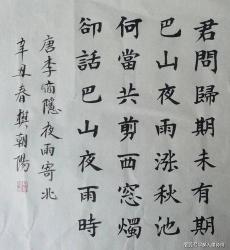 君問歸期未有期
巴山夜雨漲秋池
何當共剪西窓燭
卻話巴山夜雨時
唐李商隱夜雨寄北
辛丑春樊朝陽